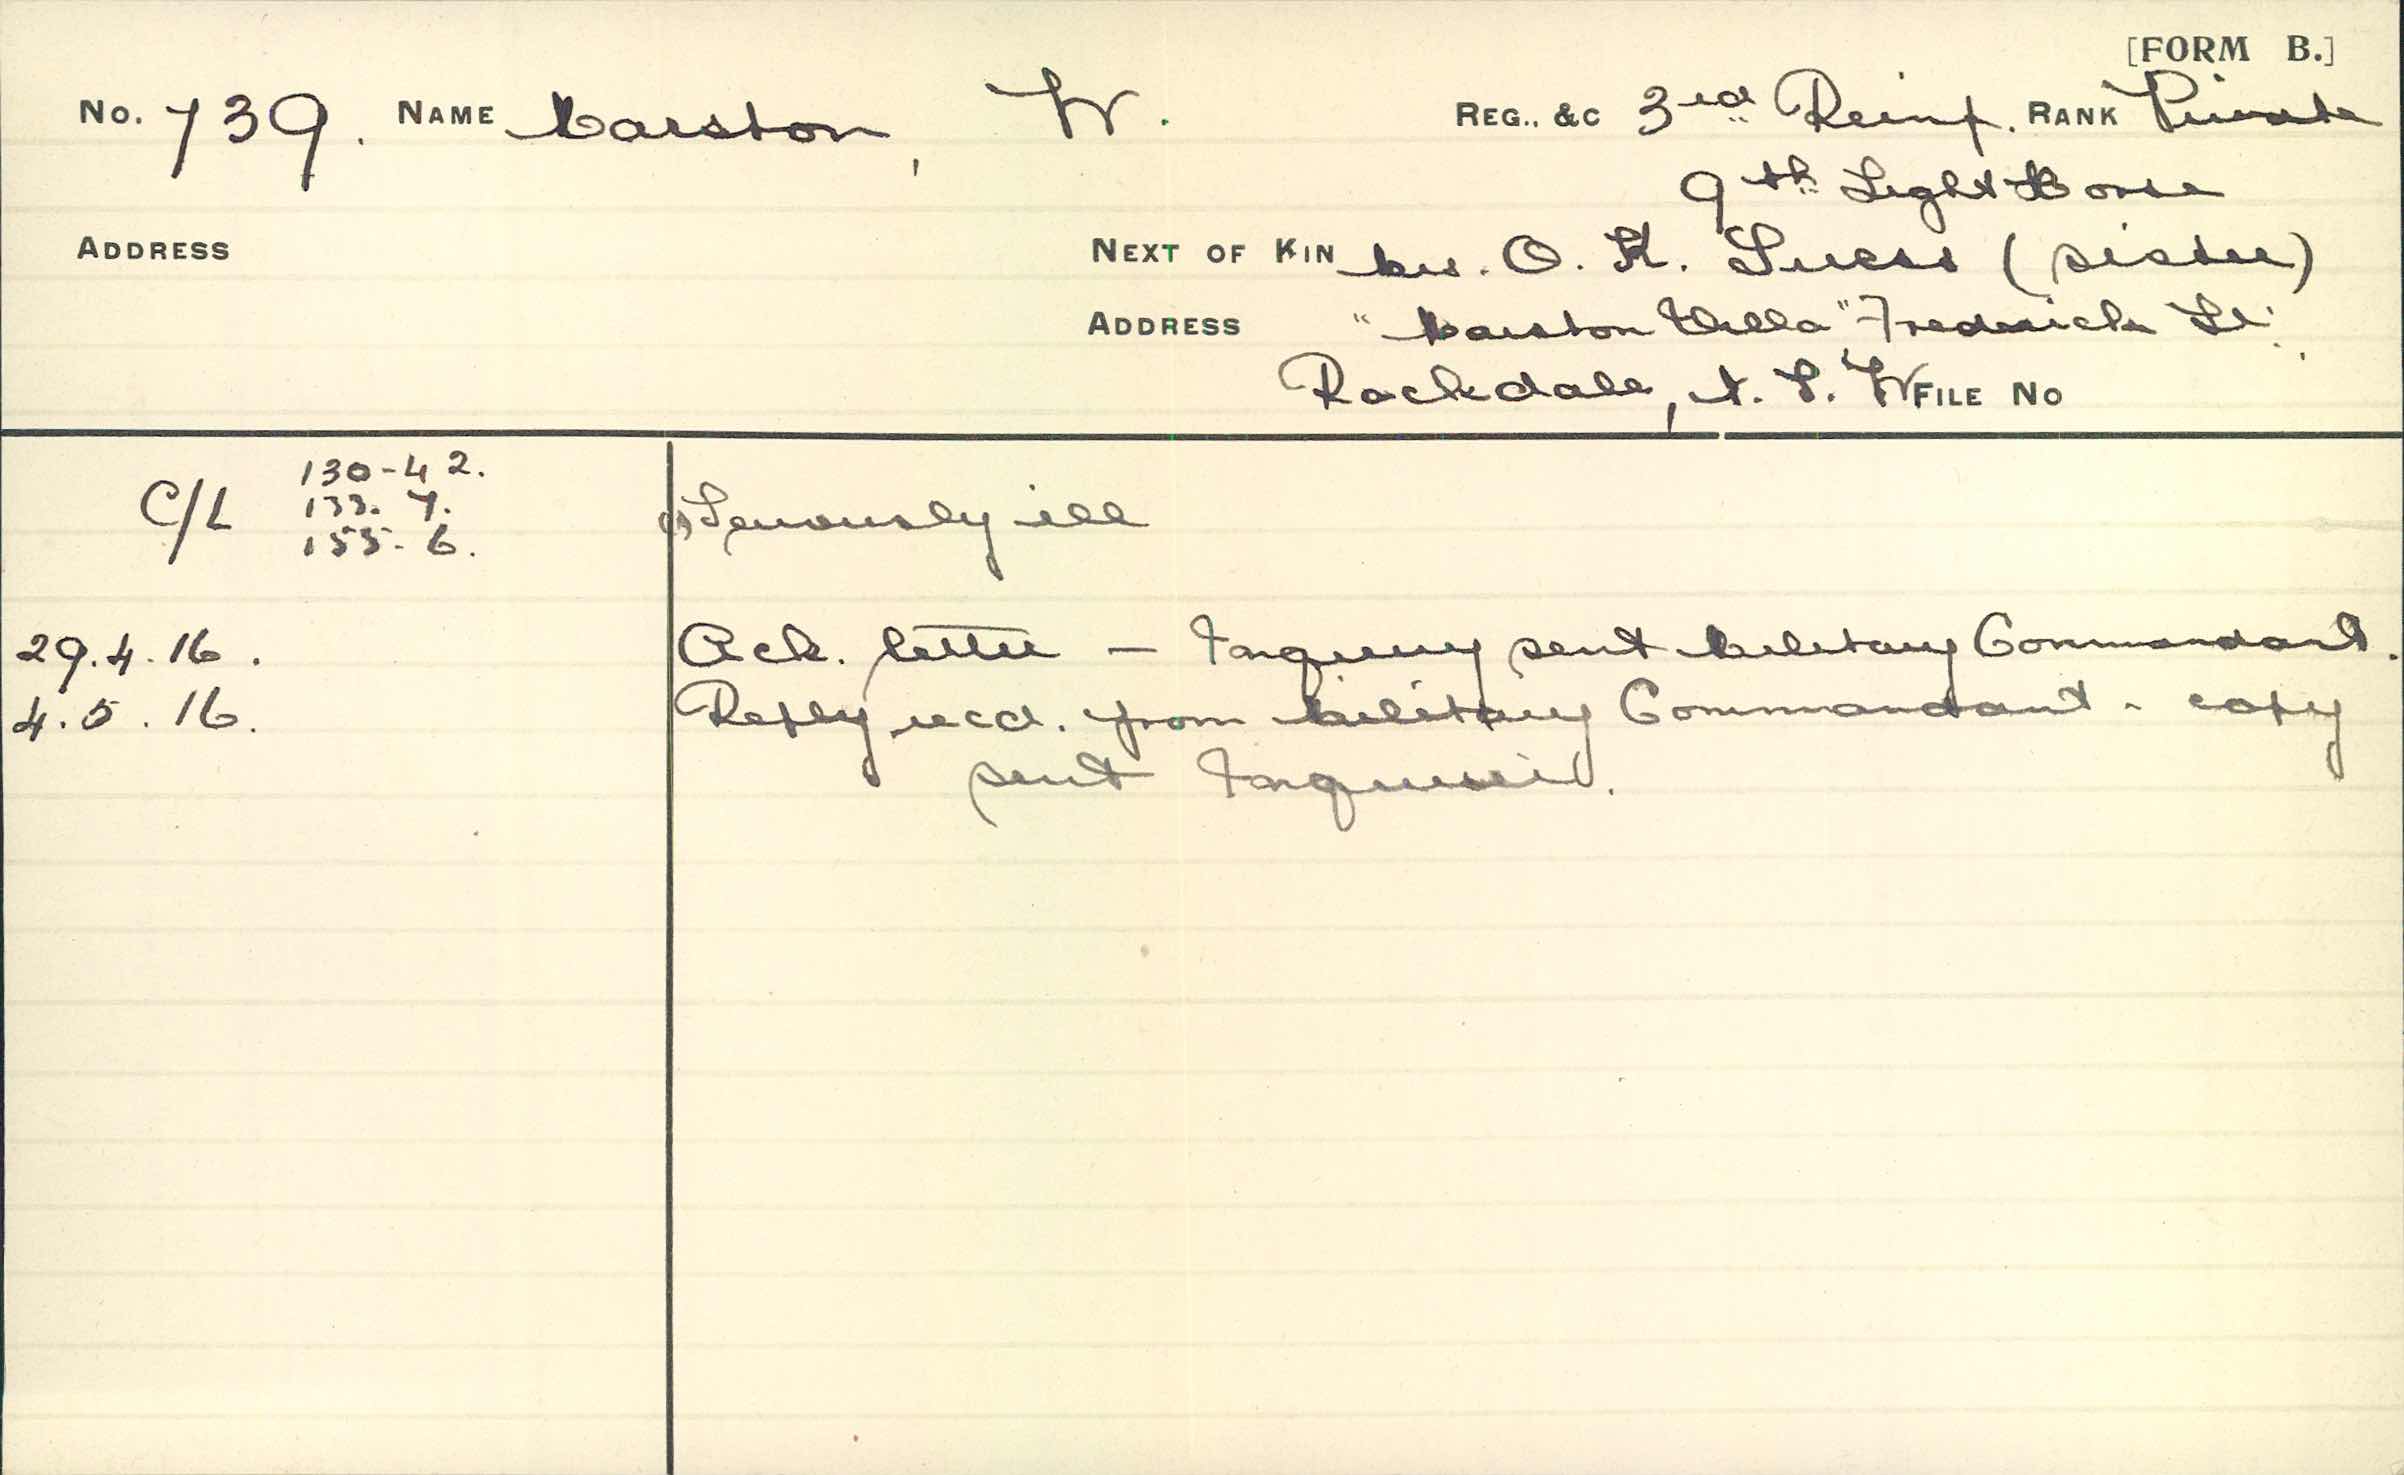 [FORM B.]
No. 739. NAME Marston, W. REG., &C 3rd Reinf. RANK Private
9th Light Horse
ADDRESS NEXT OF KIN Mrs. O. K. (sister)
ADDRESS "Marston Villa" Frederick St.,
Rockdale, N. S. W FILE NO
C/L 130-42.
133. 7. (1) Seriously ill
155. 6.
29.4.16. Ack. letter — Inquiry sent Military Commandant.
4.5.16. Reply recd. from Military Commandant - copy
sent Inquirer.